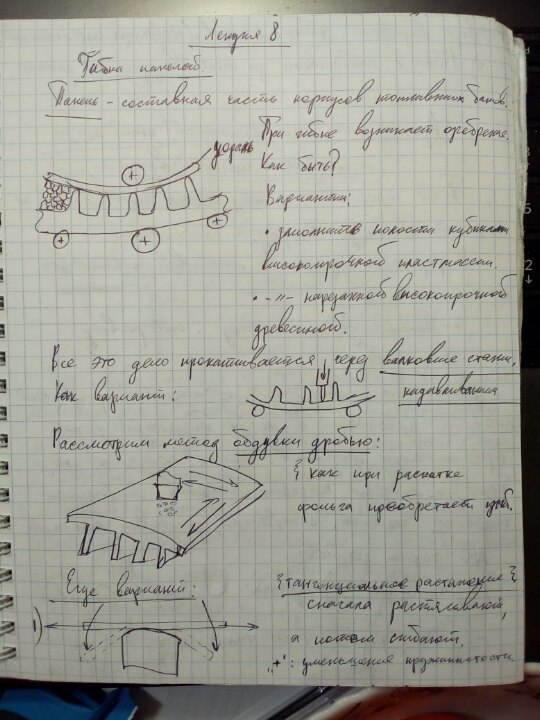 Лекция 8
Гибка панелей.
Панель - составная часть корпусов топливных баков.
При гибке возникает оребрение.
Как быть?
Варианты:
• заполнить полости кубиками
высокопрочной пластмассы.
• -"- нарезанной высокопрочной
древесиной.
Все это дело прокатывается через валковые станки.
Как вариант:
надавливания
Рассмотрим метод обдувки дробью:
{ как при раскатке
фольга приобретает изгиб.
Еще вариант:
{тангенциальное растяжение}
1)
сначала растягивают,
а потом сгибают.
"+": уменьшение пружинистости